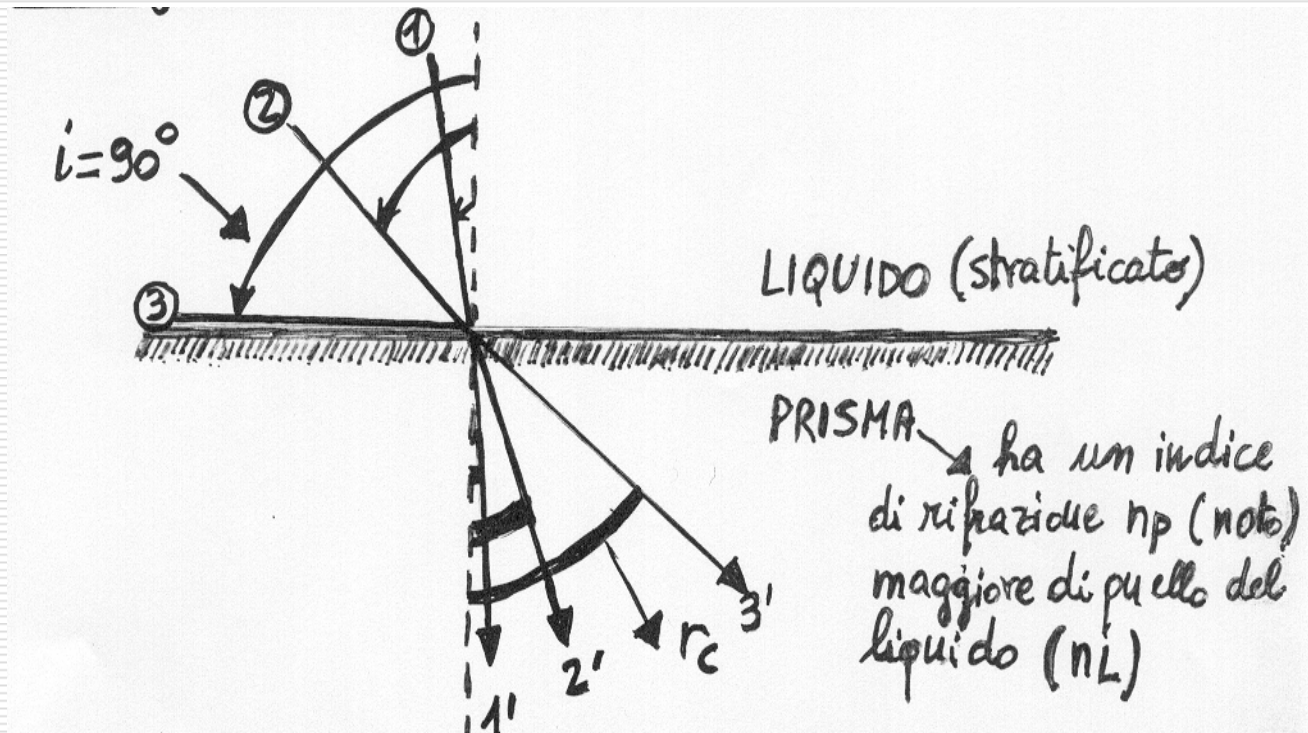 1
2
i=90°
3
LIQUIDO (stratificato)
PRISMA
ha un indice
di rifrazione np (noto)
maggiore di quello del
liquido (nL)
rc
3'
2'
1'